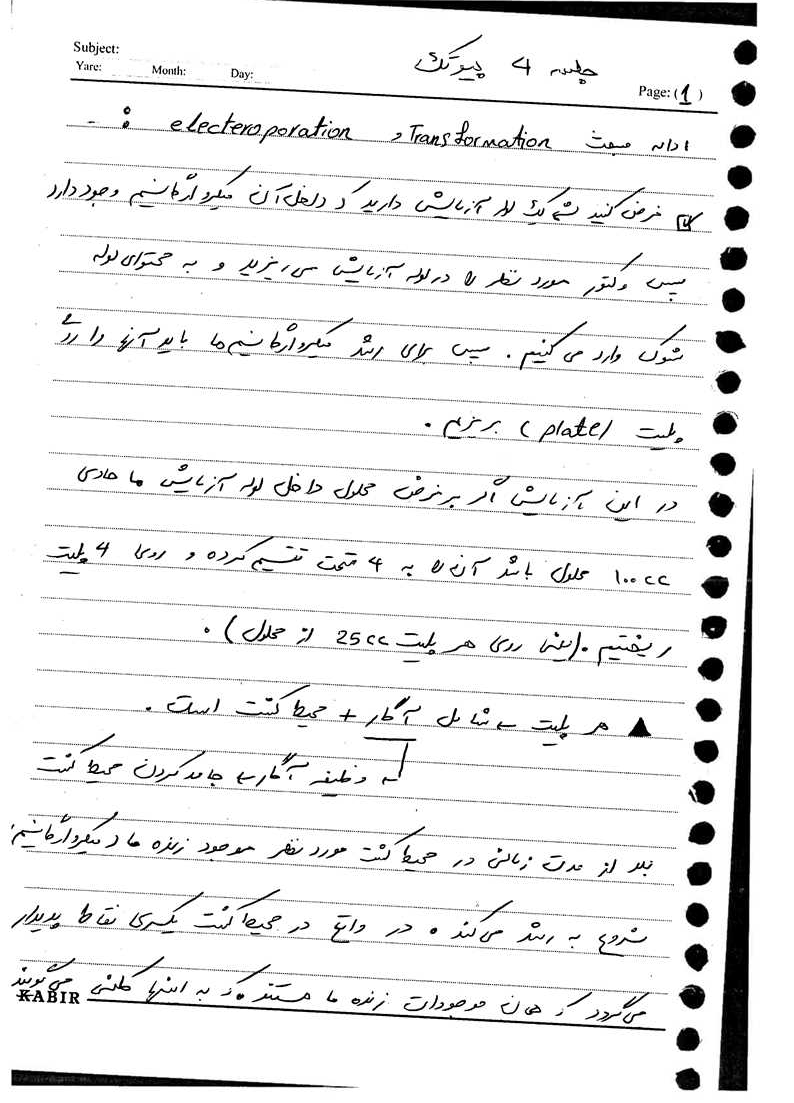 Subject:
Yare: Month: Day:
جلسه 4 بیوتک
Page: (1)
ادامه مبحث Transformation و electeroporation :-
فرض کنید شما یک لوله آزمایش دارید که داخل آن میکروارگانیسم وجود دارد
سپس وکتور مورد نظر را در لوله آزمایش می ریزید و به محتوای لوله
شوک وارد می کنیم. سپس برای رشد میکروارگانیسم ها باید آنها را روی
پلیت (plate) بریزیم.
در این آزمایش اگر بر فرض محلول داخل لوله آزمایش ما حاوی
۱۰۰cc محلول باشد آن را به 4 قسمت تقسیم کرده و روی 4 پلیت
ریختیم. (یعنی روی هر پلیت 25cc از محلول).
▲ هر پلیت شامل آگار + محیط کشت است.
وظیفه آگار جامد کردن محیط کشت
بعد از مدت زمانی در محیط کشت مورد نظر موجود زنده ما (میکروارگانیسم)
شروع به رشد می کند. در واقع در محیط کشت یکسری نقاط پدیدار
می گردد که همان موجودات زنده ما هستند که به اینها کلنی می گویند
KABIR